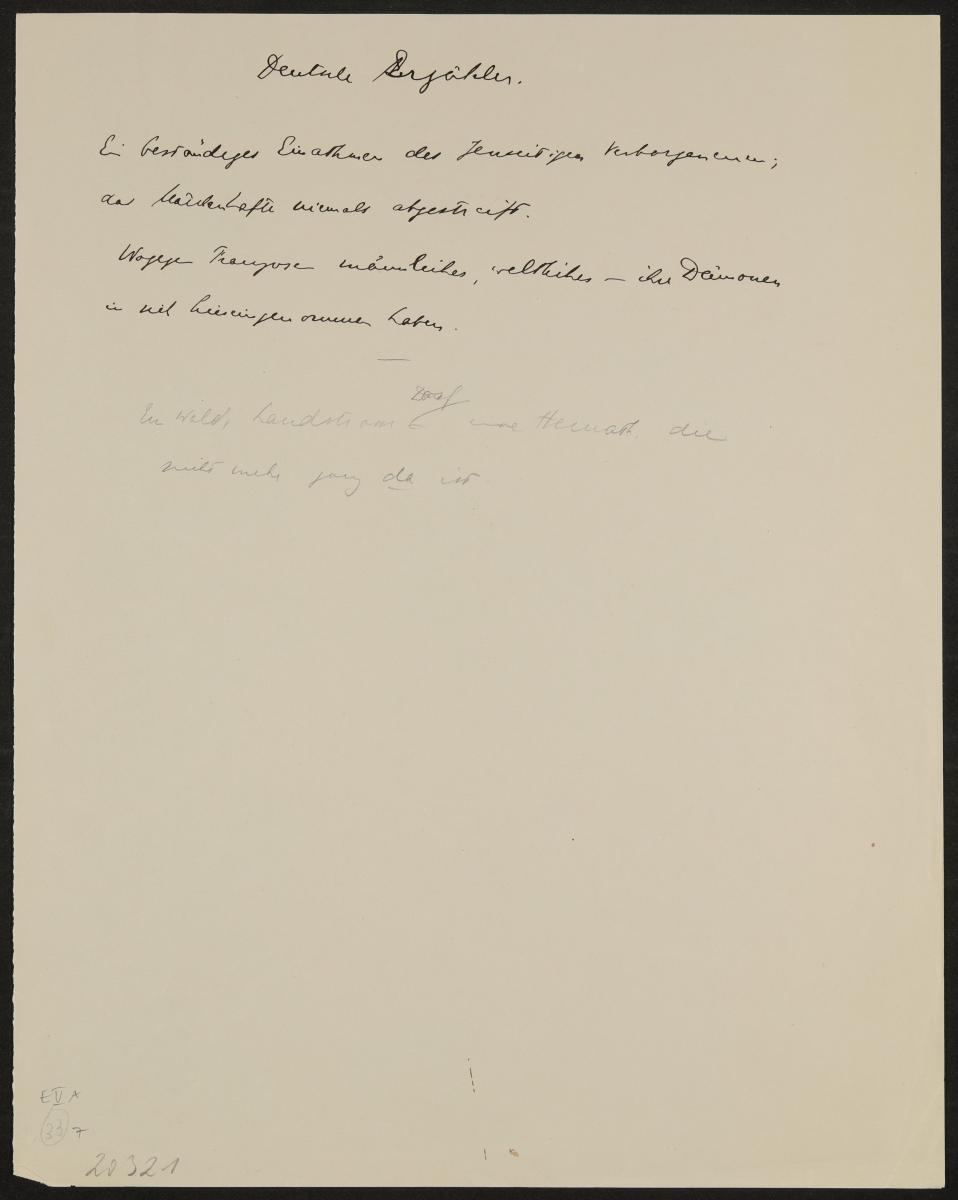 Deutsche Erzähler.
Ein beständiges Einathmen des Jenseitigen Verborgenen;
das Märchenhafte niemals abgestreift.
Wogegen Franzosen männliches, weltliches – ihre Dämonen
in sich hineingenommen haben.
—
Ein Wald, Landstrasse eine Heimath, die
nicht mehr ganz da ist
E V A
33 7
20321